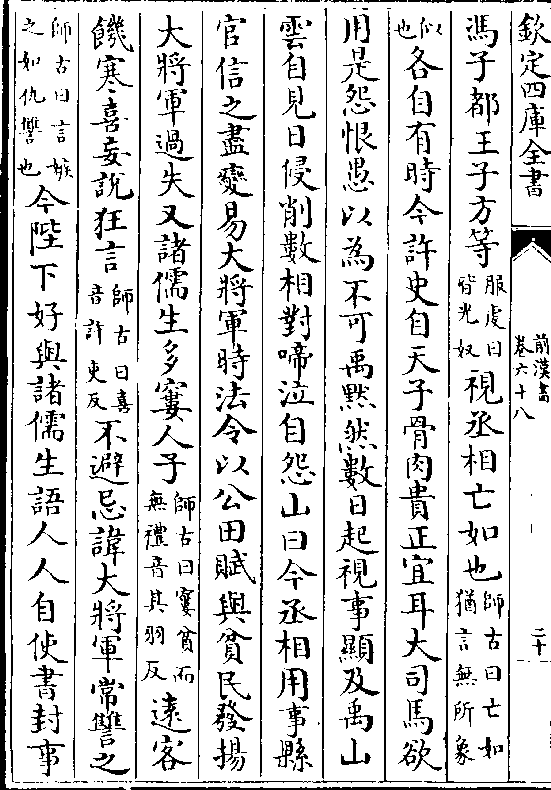 欽定四庫全書
前漢書
卷六十八
二十
馮子都王子方等服虔曰皆光奴視丞相亡如也師古曰亡如猶言無所象
似也各自有時今許史自天子骨肉貴正宜耳大司馬欲
用是怨恨愚以為不可禹黙然數日起視事顯及禹山
雲自見日侵削數相對啼泣自怨山曰今丞相用事縣
官信之盡變易大將軍時法令以公田賦與貧民發揚
大將軍過失又諸儒生多窶人子師古曰窶貧而無禮音其羽反逺客
饑寒喜妄說狂言師古曰喜音許吏反不避忌諱大將軍常讐之
師古曰言嫉之如仇讐也今陛下好與諸儒生語人人自使書封事